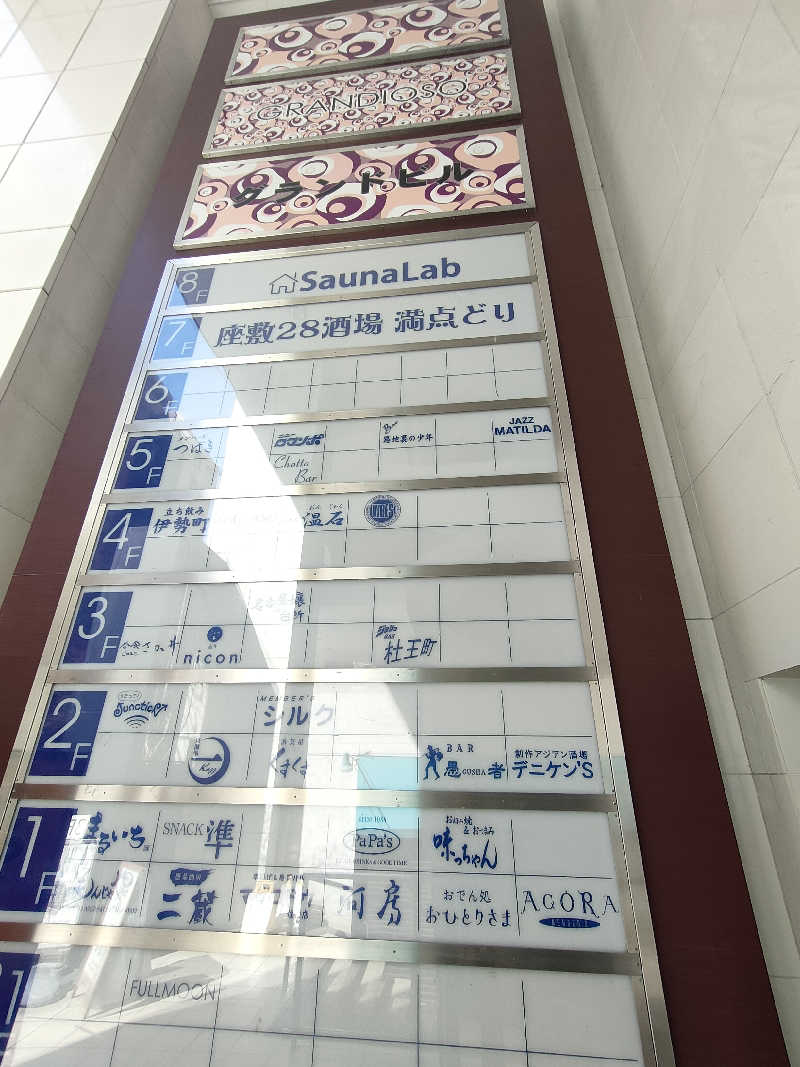 GRANDIOSO
グランドビル
8F
SaunaLab
7F
座敷28酒場 満点どり
6F
5F
つばき
ロマンポ
路地裏の少年
JAZZ
MATILDA
Chotto
Bar
4F
立ち飲み
伊勢町
温石
3F
nicon
杜王町
2F
Junction
MEMBER'S
シルク
ぐずぐず
BAR
愚者
GUSHA
創作アジアン酒場
デニケン'S
1F
まるいち
SNACK 準
PaPa's
お好み焼
味っちゃん
二蔵
河房
おでん処
おひとりさま
AGORA
FULLMOON